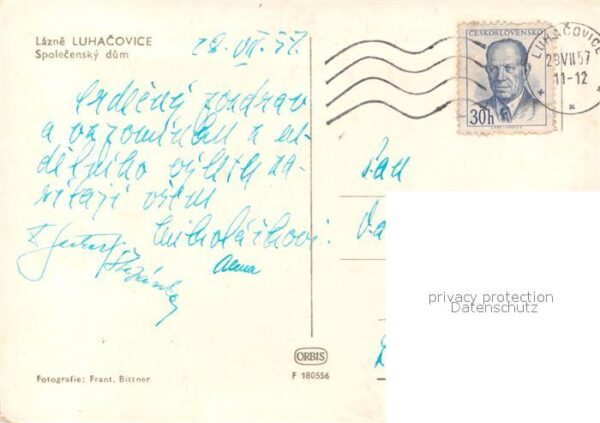 Lázně LUHAČOVICE
Společenský dům
28.VII.57.
Srdečný pozdrav
a vzpomínku z ne-
dělního výletu za-
sílají všem
Mikoláškovi.
Alena
Pan
ČESKOSLOVENSKO
30h
LUHAČOVICE
28VII57
11-12
privacy protection
Datenschutz
ORBIS
F 180556
Fotografie: Frant. Bittner